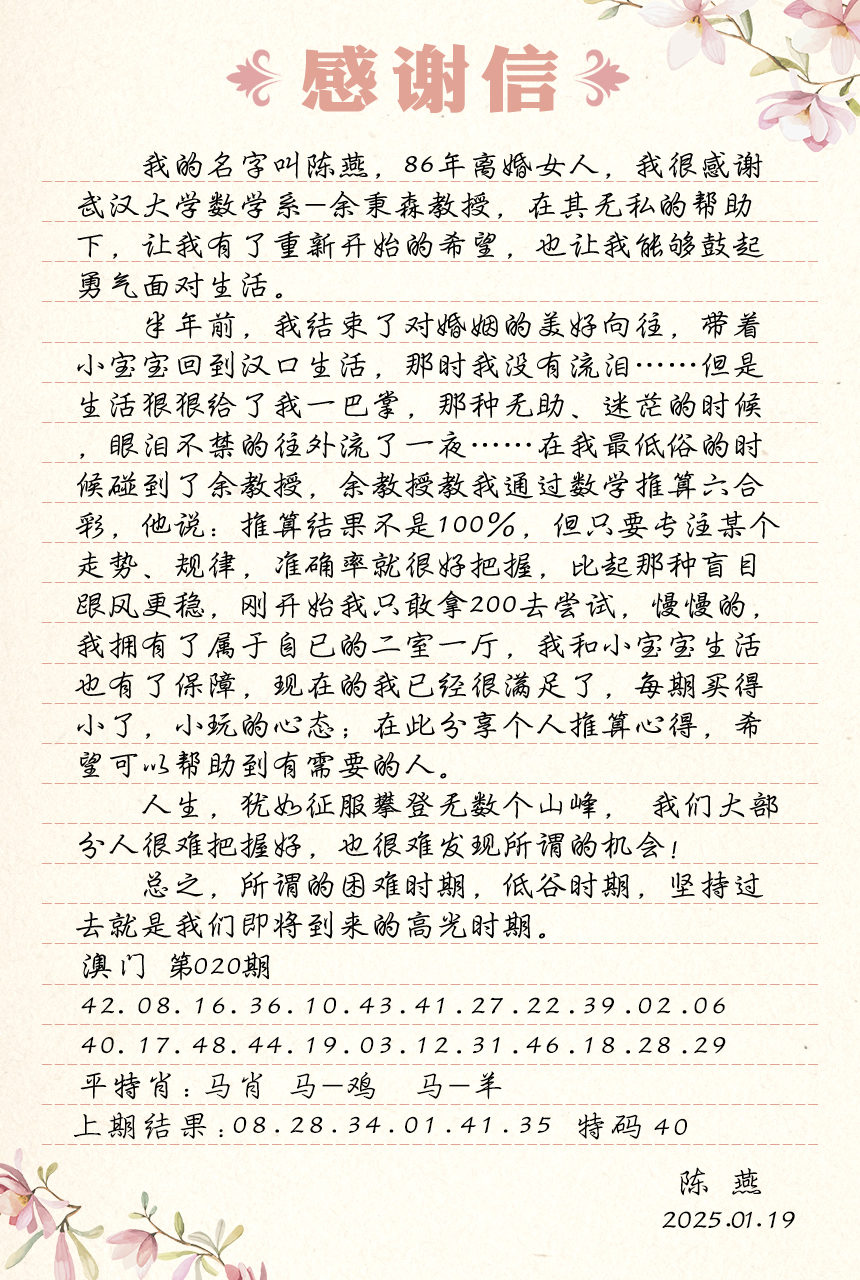 感谢信
我的名字叫陈燕，86年离婚女人，我很感谢
武汉大学数学系-余秉森教授，在其无私的帮助
下，让我有了重新开始的希望，也让我能够鼓起
勇气面对生活。
半年前，我结束了对婚姻的美好向往，带着
小宝宝回到汉口生活，那时我没有流泪……但是
生活狠狠给了我一巴掌，那种无助、迷茫的时候
，眼泪不禁的往外流了一夜……在我最低俗的时
候碰到了余教授，余教授教我通过数学推算六合
彩，他说：推算结果不是100%，但只要专注某个
走势、规律，准确率就很好把握，比起那种盲目
跟风更稳，刚开始我只敢拿200去尝试，慢慢的，
我拥有了属于自已的二室一厅，我和小宝宝生活
也有了保障，现在的我已经很满足了，每期买得
小了，小玩的心态；在此分享个人推算心得，希
望可以帮助到有需要的人。
人生，犹如征服攀登无数个山峰， 我们大部
分人很难把握好，也很难发现所谓的机会！
总之，所谓的困难时期，低谷时期，坚持过
去就是我们即将到来的高光时期。
澳门 第020期
42.08.16.36.10.43.41.27.22.39.02.06
40.17.48.44.19.03.12.31.46.18.28.29
平特肖：马肖 马-鸡 马-羊
上期结果：08.28.34.01.41.35 特码 40
陈 燕
2025.01.19